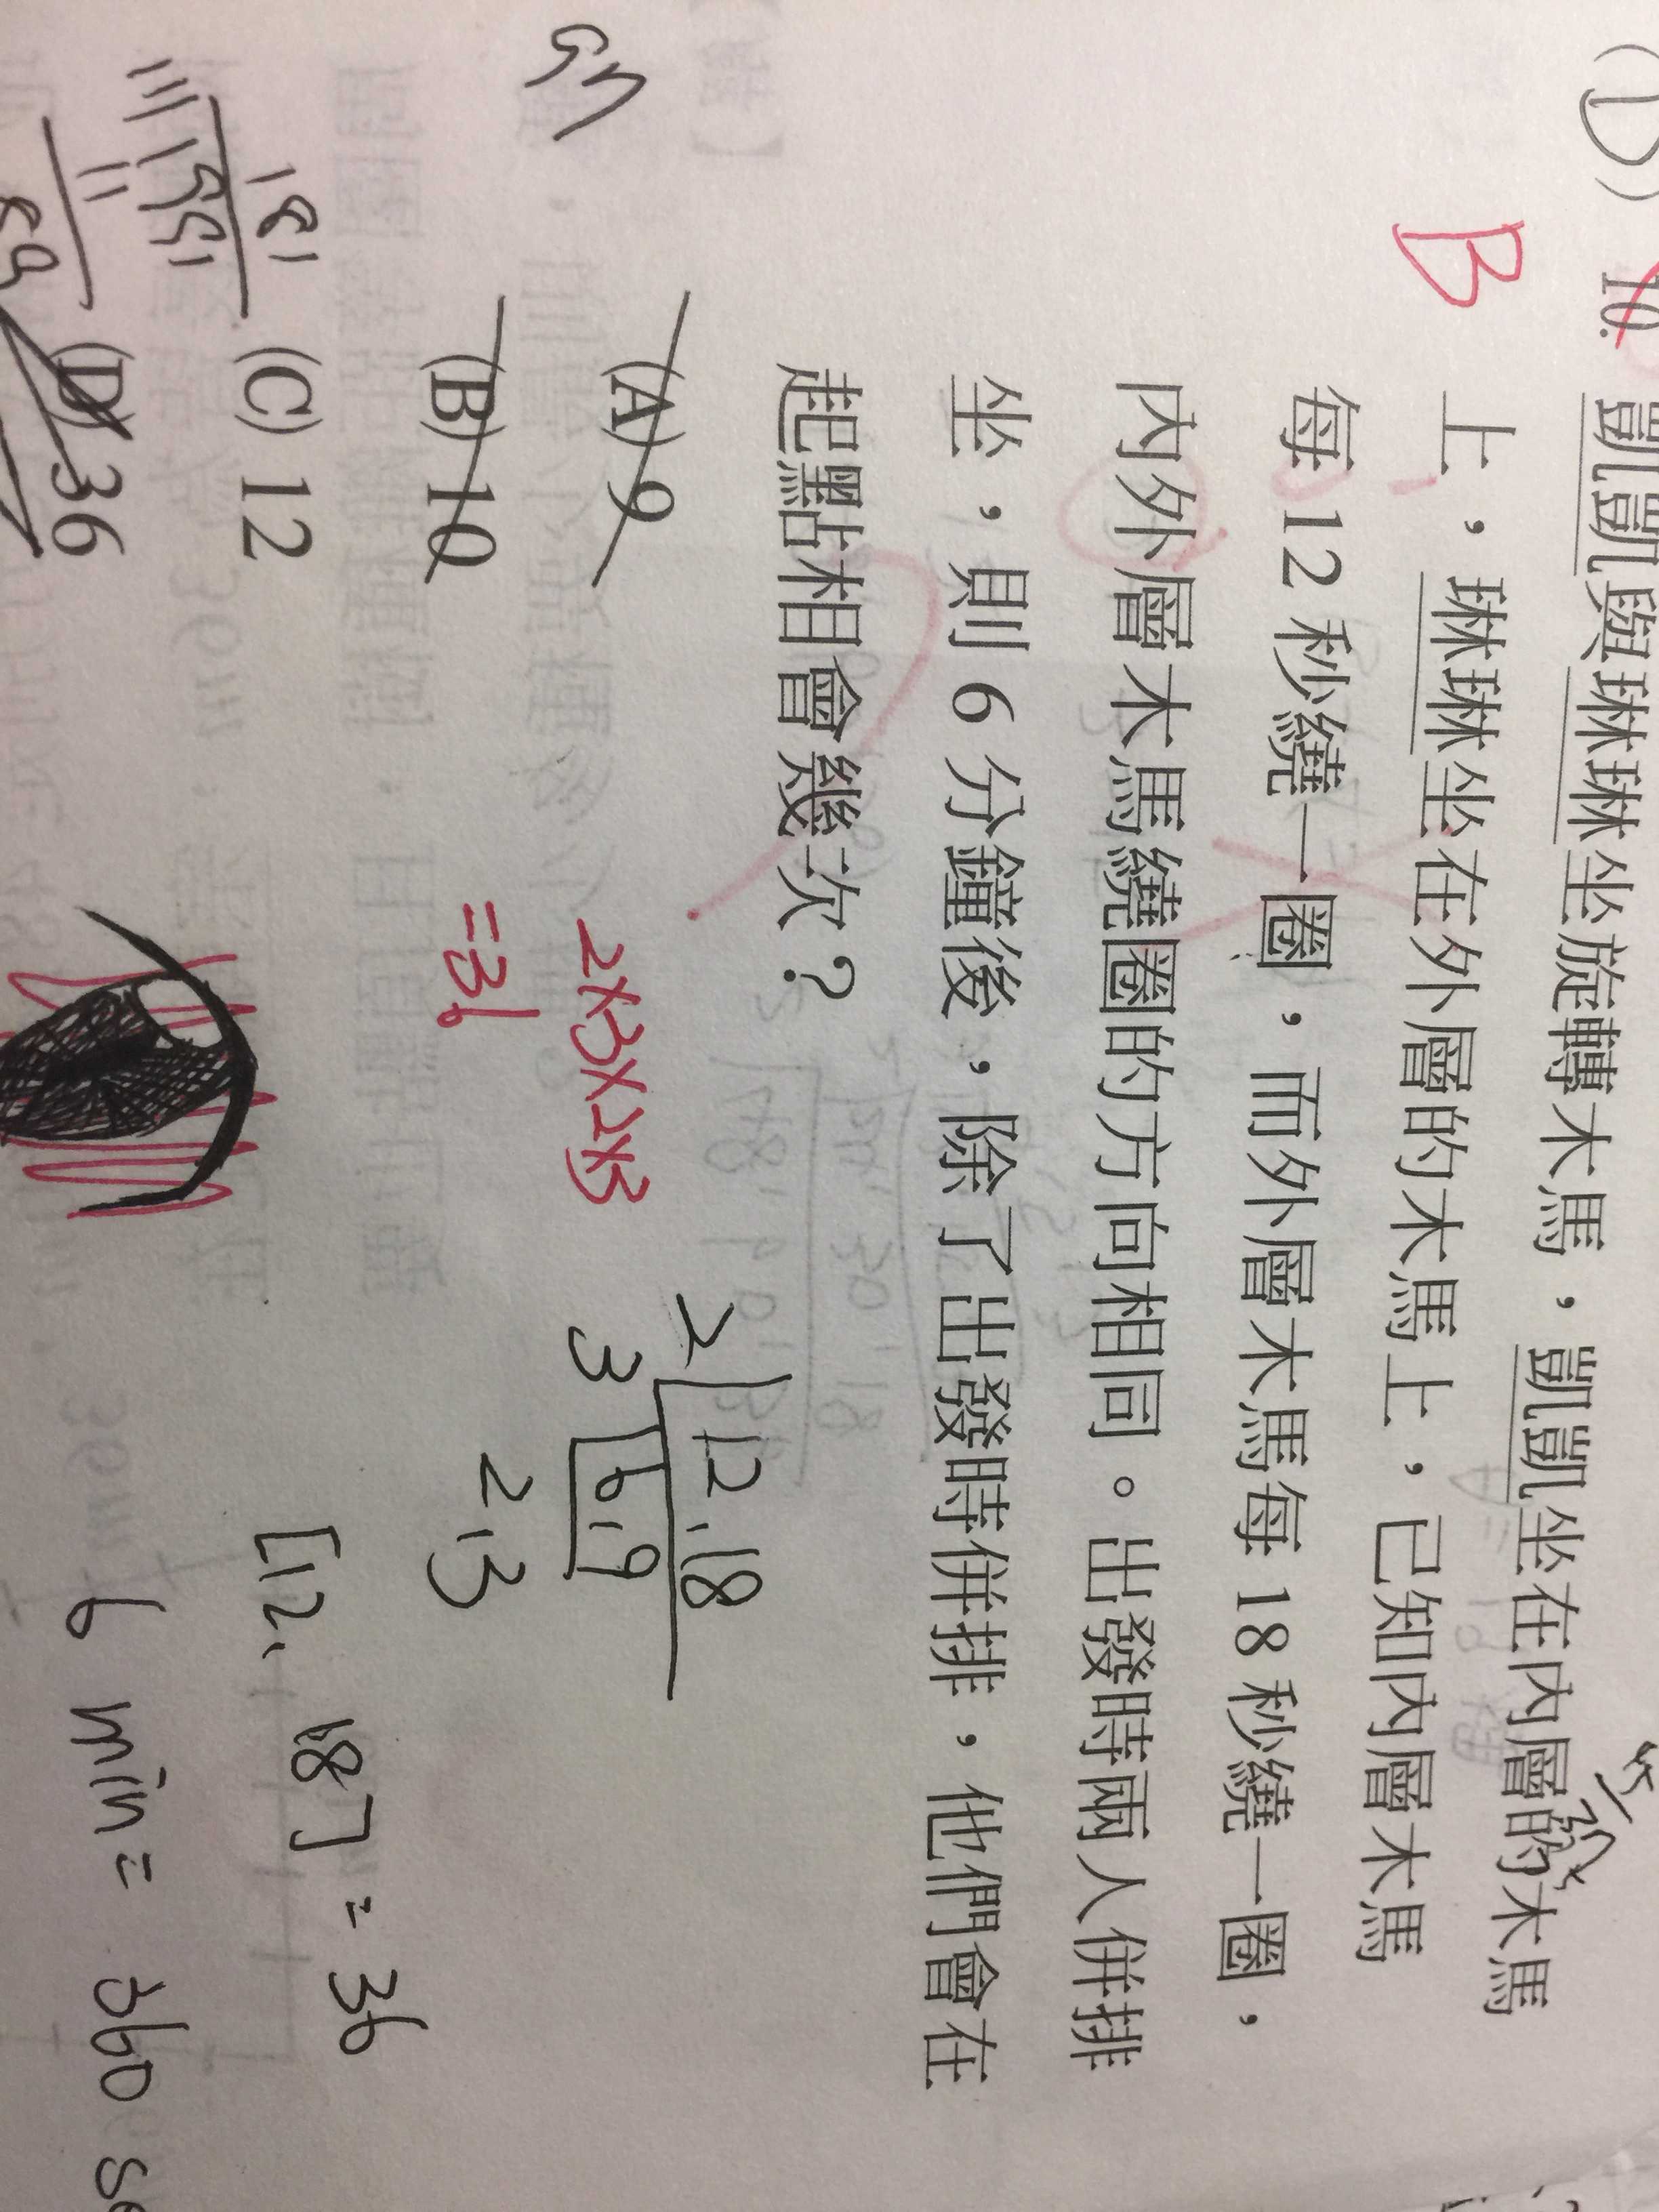 (D) 10. 凱凱與琳琳坐旋轉木馬，凱凱坐在內層的木馬
B 上，琳琳坐在外層的木馬上，已知內層木馬
每 12 秒繞一圈，而外層木馬每 18 秒繞一圈，
內外層木馬繞圈的方向相同。出發時兩人併排
坐，則 6 分鐘後，除了出發時併排，他們會在
起點相會幾次？
(A) 9
(B) 10
(C) 12
(D) 36
2×3×2×3
=36
2 12,18
3 6,9
2,3
[12, 18] = 36
6 min = 360
181
11
89